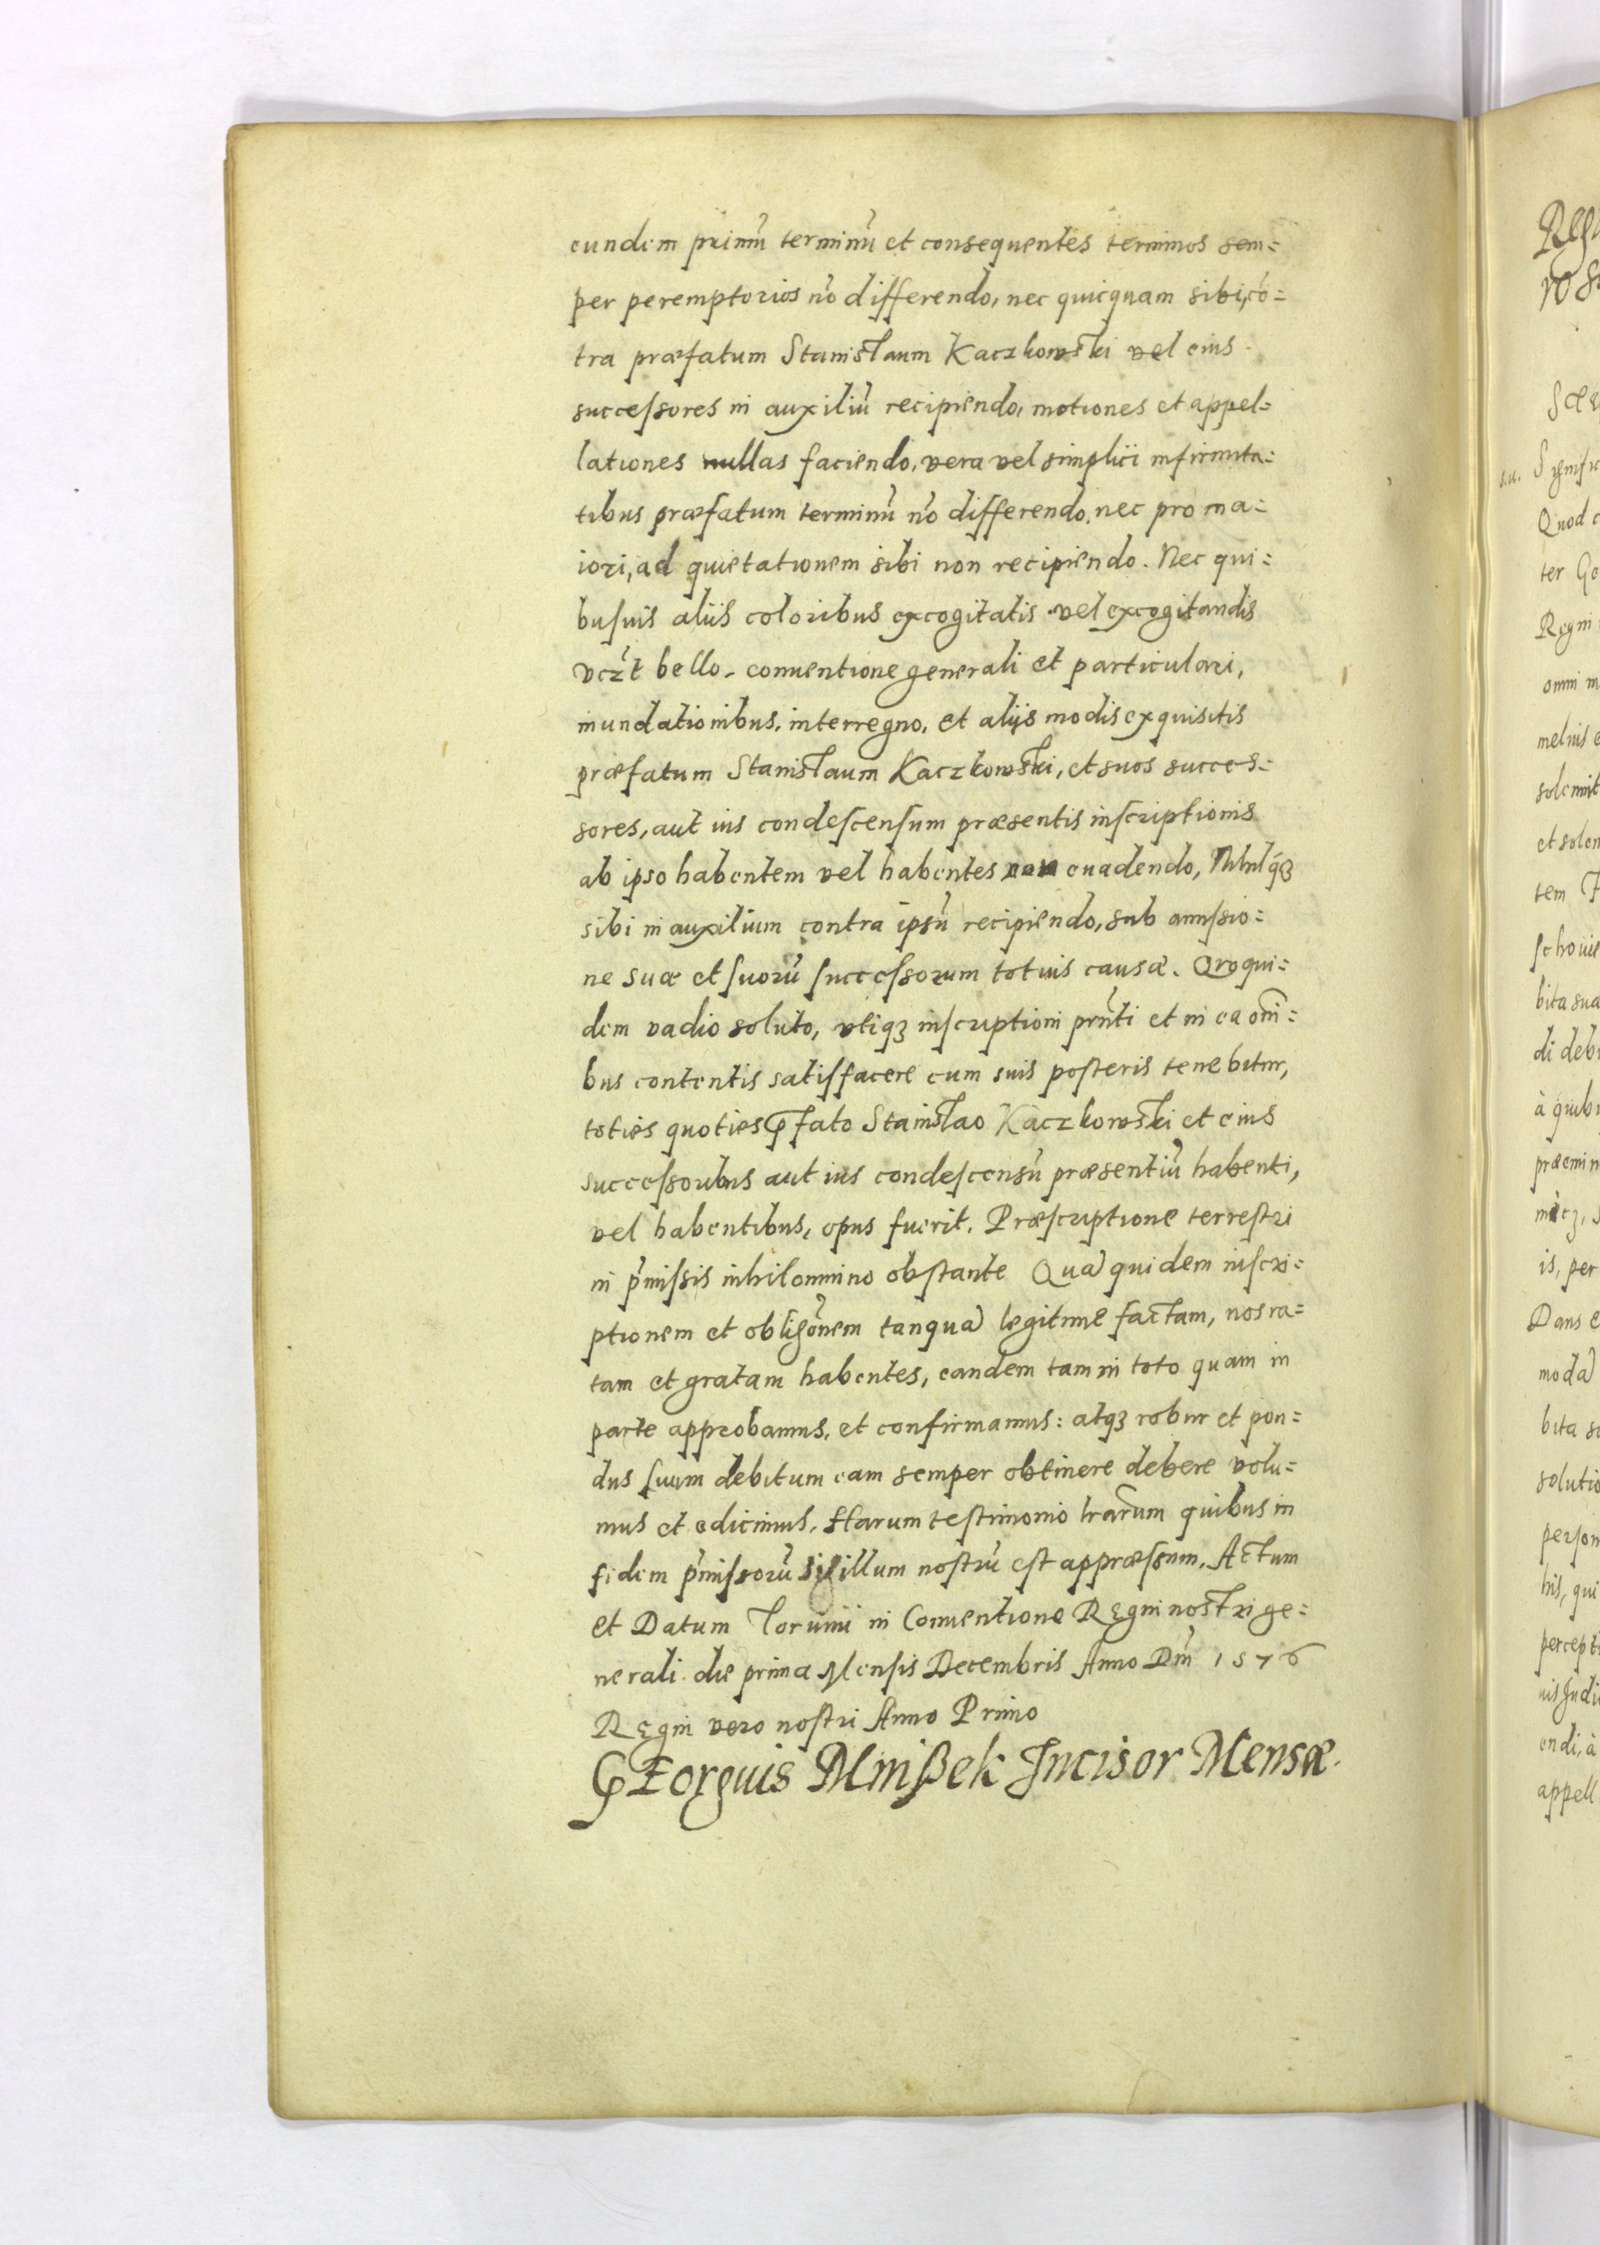 eundem primũ terminũ et consequentes terminos sem=
per peremptorios nõ differendo, nec quicquam sibi, cõ=
tra præfatum Stanisłaum Kaczkowski vel eius
succeſsores in auxiliũ recipiendo, motiones et appel=
lationes nullas faciendo, vera vel simplici infirmita=
tibus præfatum terminũ nõ differendo, nec pro ma=
iori, ad quietationem sibi non recipiendo. Nec qui=
buſuis aliis coloribus excogitatis vel excogitandis
vczt bello, conuentione generali et particulari,
inundationibus, interregno, et alijs modis exquisitis
præfatum Stanisłaum Kaczkowski, et suos succes=
sores, aut ius condeſcenſum præsentis inſcriptionis
ab ipso habentem vel habentes non euadendo, Nihilqꝫ
sibi in auxilium contra ipsũ recipiendo, sub amiſsio=
ne suæ et ſuorũ ſucceſsorum totius causæ. Quoqui=
dem vadio soluto, vtiqꝫ inscriptioni prñti et in ea oñi=
bus contentis satiſfacere cum suis poſteris tenebitur,
toties quoties p̃fato Stanisłao Kaczkowski et eius
succeſsoribus aut ius condeſcensũ præsentiũ habenti,
vel habentibus, opus fuerit. Præſcriptione terreſtri
in p̃miſsis nihil omnino obſtante Quã quidem inſcri=
ptionem et obligõnem tanquã legitime factam, nos ra=
tam et gratam habentes, eandem tam in toto quam in
parte approbamus, et confirmamus: atqꝫ robur et pon=
dus ſuum debitum eam semper obtinere debere volu=
mus et edicimus. Harum teſtimonio lrãrum quibus in
fidem p̃miſsorũ sigillum noſtrũ eſt appræſsum. Actum
et Datum Torunii in Conuentione Regni noſtri ge=
nerali die prima Menſis Decembris Anno Dñi 1576
Regni vero noſtri Anno Primo
GEorgius Mnißek Incisor Mensæ.